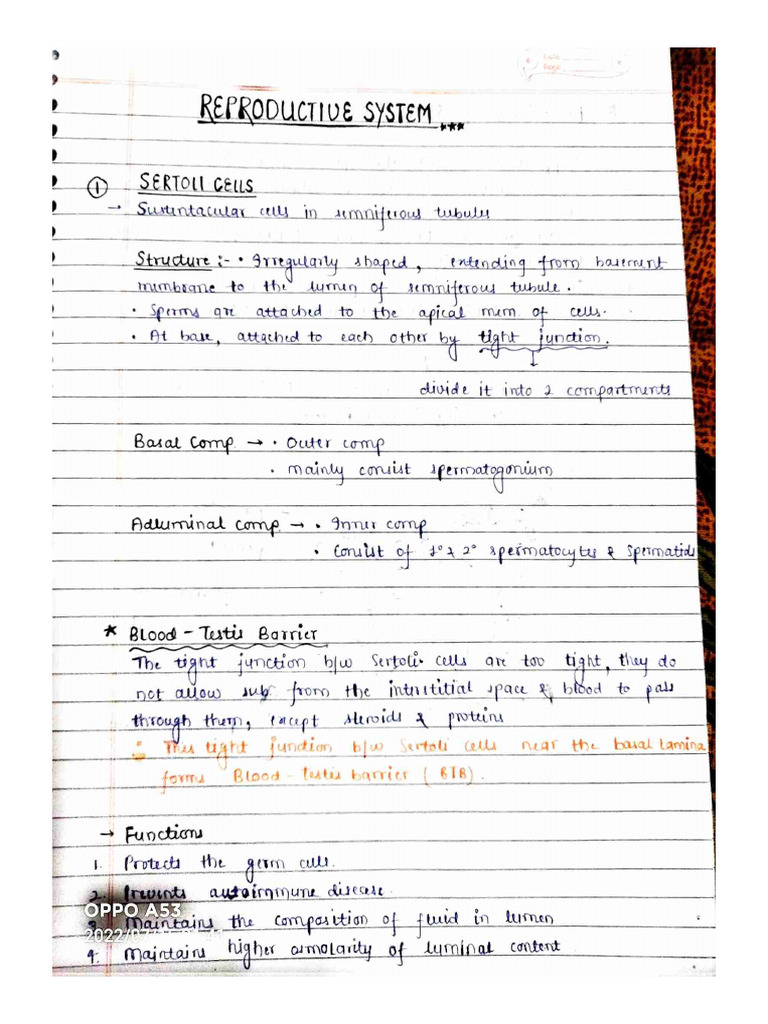 REPRODUCTIVE SYSTEM ***
① SERTOLI CELLS
→ Sustentacular cells in semniferous tubules
Structure :- • Irregularly shaped, extending from basement
membrane to the lumen of semniferous tubule.
• Sperms are attached to the apical mem of cells.
• At base, attached to each other by tight junction.
↓
divide it into 2 compartments
Basal Comp → • Outer comp
• mainly consist spermatogonium
Adluminal comp → • Inner comp
• Consist of 1° & 2° spermatocytes & Spermatids
* Blood - Testis Barrier
The tight junction b/w Sertoli cells are too tight, they do
not allow sub from the interstitial space & blood to pass
through them, except steroids & proteins
∴ This tight junction b/w Sertoli cells near the basal lamina
forms Blood - Testis barrier (BTB).
→ Functions
1. Protects the germ cells.
2. Prevents autoimmune disease.
3. Maintains the composition of fluid in lumen
4. Maintains higher osmolarity of luminal content
OPPO A53